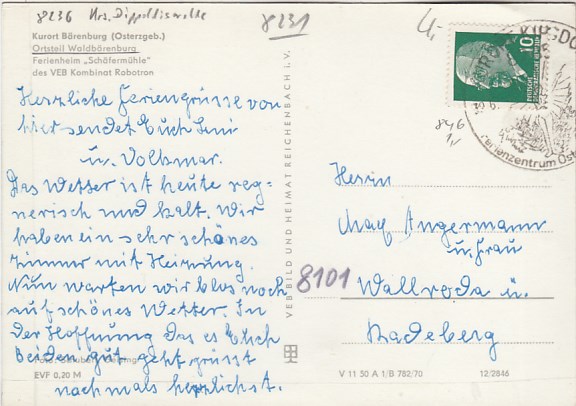 8236 Krs. Dippoldiswalde
8231
Kurort Bärenburg (Osterzgeb.)
Ortsteil Waldbärenburg
Ferienheim „Schäfermühle"
des VEB Kombinat Robotron
Herzliche Feriengrüsse von
hier sendet Euch
u. Volkmar.
Das Wetter ist heute reg-
nerisch und kalt. Wir
haben ein sehr schönes
Zimmer mit Heizung.
Nun warten wir blos noch
auf schönes Wetter. In
der Hoffnung das es Euch
beiden gut geht grüsst
nochmals herzlichst.
EVF 0,20 M
VEB BILD UND HEIMAT REICHENBACH I. V.
10
DEUTSCHE
DEMOKRATISCHE REPUBLIK
KIPSDO
Ferienzentrum Ost
846
Herrn
Max Angermann
u. Frau
8101 Wallroda ü.
Radeberg
V 11 50 A 1/B 782/70 12/2846